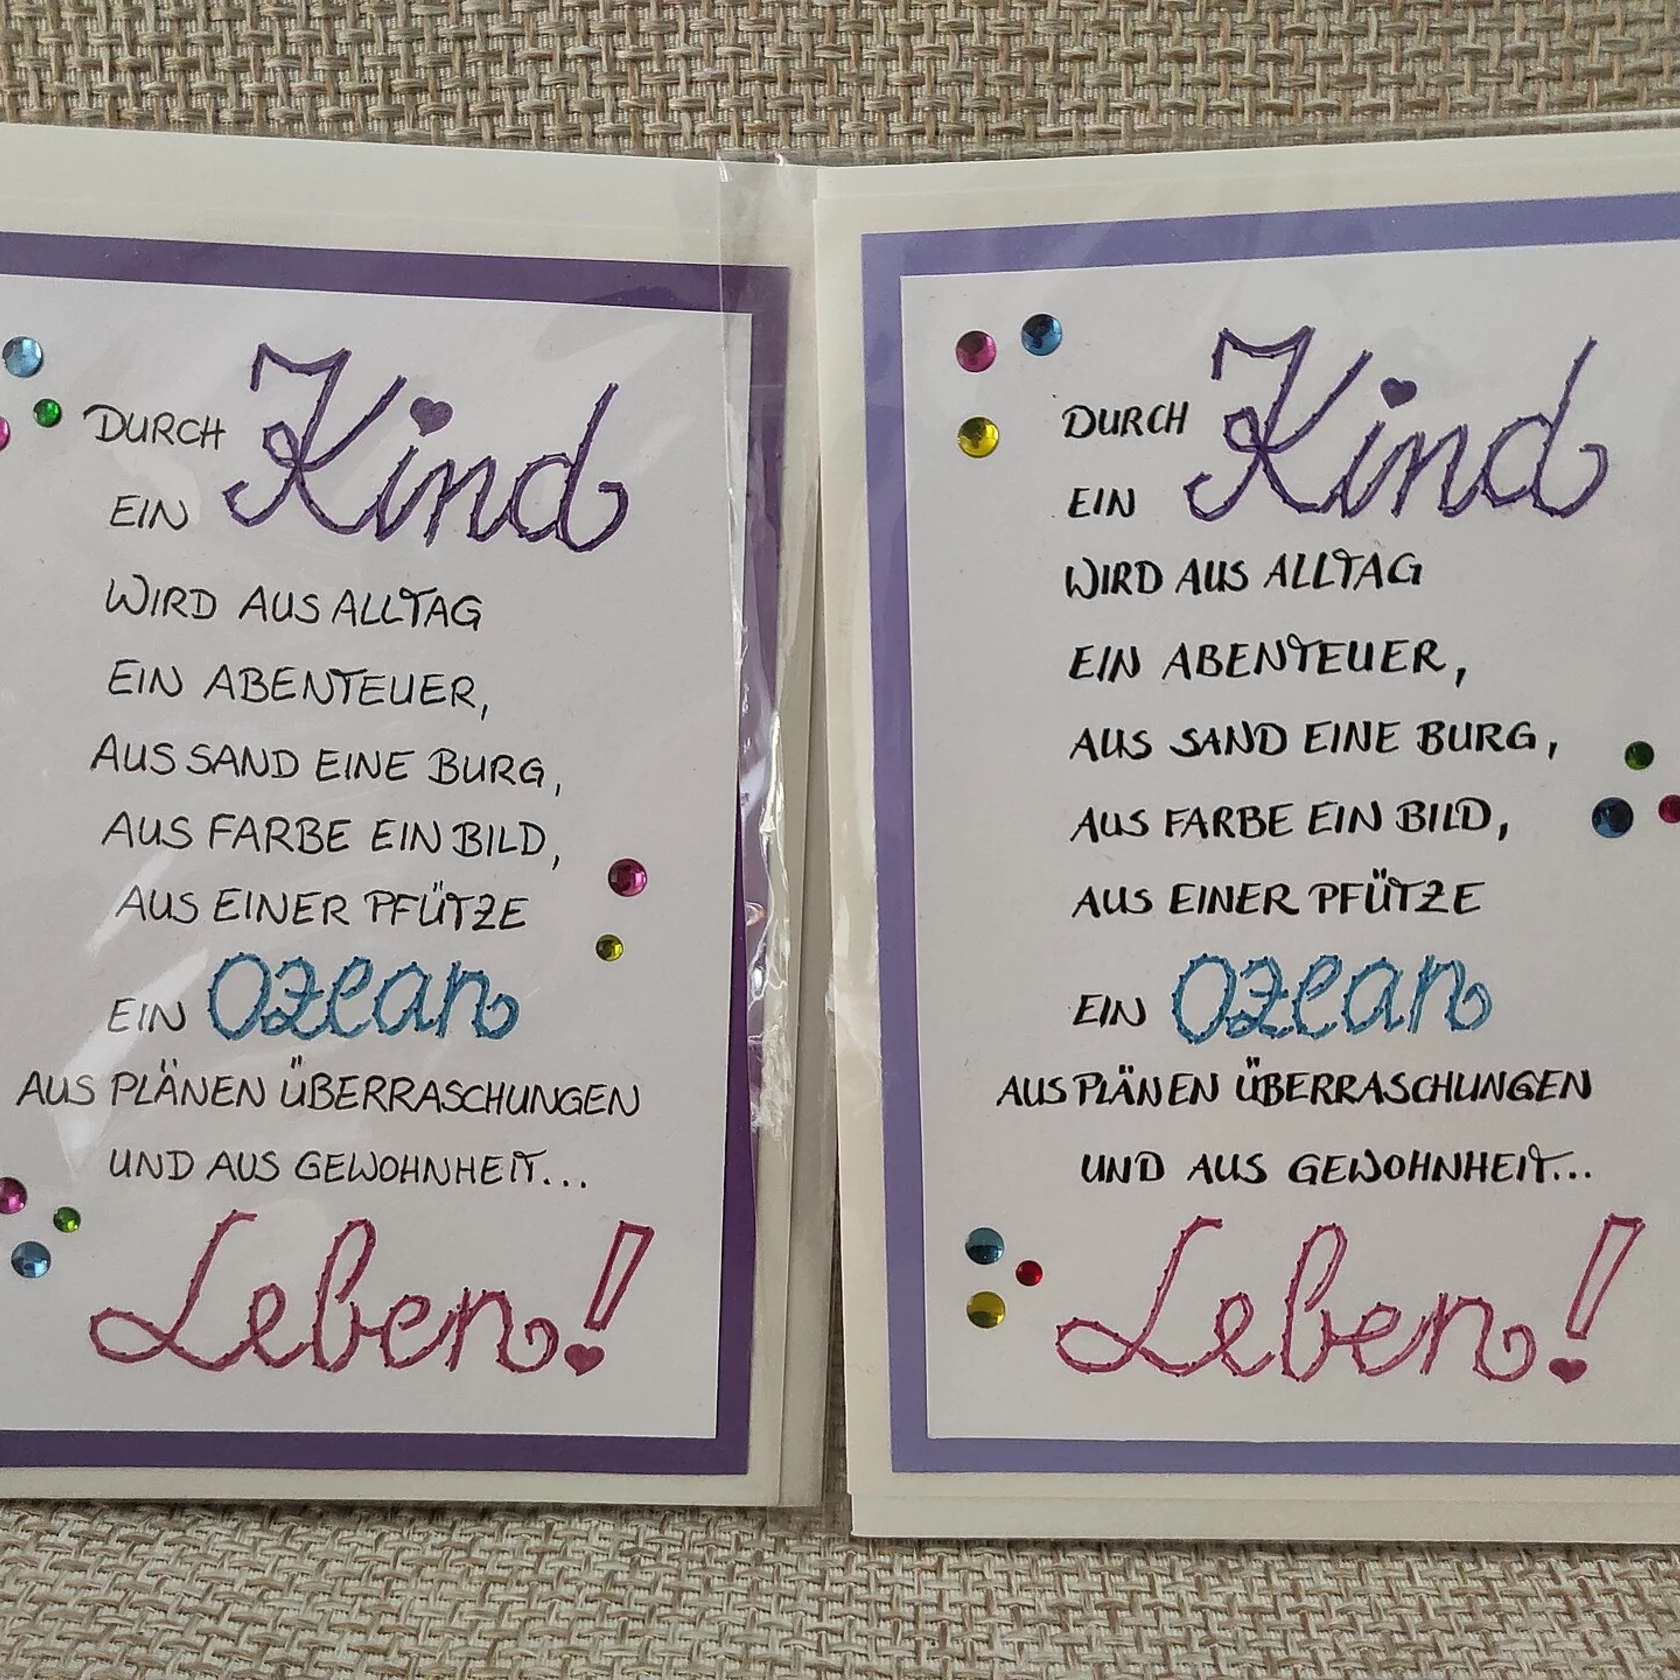 DURCH
EIN Kind
WIRD AUS ALLTAG
EIN ABENTEUER,
AUS SAND EINE BURG,
AUS FARBE EIN BILD,
AUS EINER PFÜTZE
EIN Ozean
AUS PLÄNEN ÜBERRASCHUNGEN
UND AUS GEWOHNHEIT...
Leben!
DURCH
EIN Kind
WIRD AUS ALLTAG
EIN ABENTEUER,
AUS SAND EINE BURG,
AUS FARBE EIN BILD,
AUS EINER PFÜTZE
EIN Ozean
AUS PLÄNEN ÜBERRASCHUNGEN
UND AUS GEWOHNHEIT...
Leben!